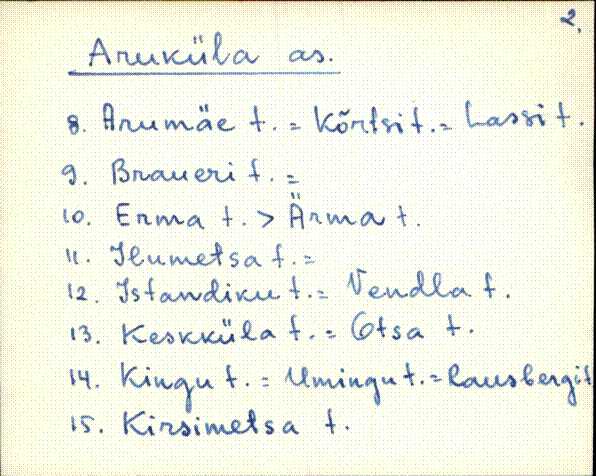 2.
Aruküla as.
8. Arumäe t. = Kõrtsi t. = Lassi t.
9. Braueri t. =
10. Erma t. > Ärma t.
11. Ilumetsa t. =
12. Istandiku t. = Vendla t.
13. Keskküla t. = Otsa t.
14. Kingu t. = Umingu t. = Rausbergi t
15. Kirsimetsa t.